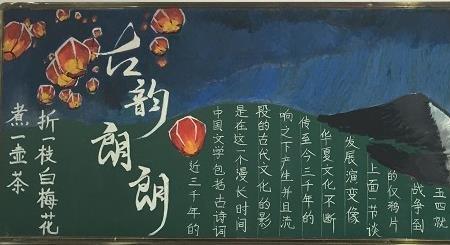 古韵朗朗
折一枝白梅花
煮一壶茶
近三千年的
中国文学包括古诗词
是在这一个漫长时间
段的古代文化的影
响之下产生并且流
传至今三千年的
华夏文化不断
发展演变像
上面一节谈
的仅鸦片
战争到
五四就